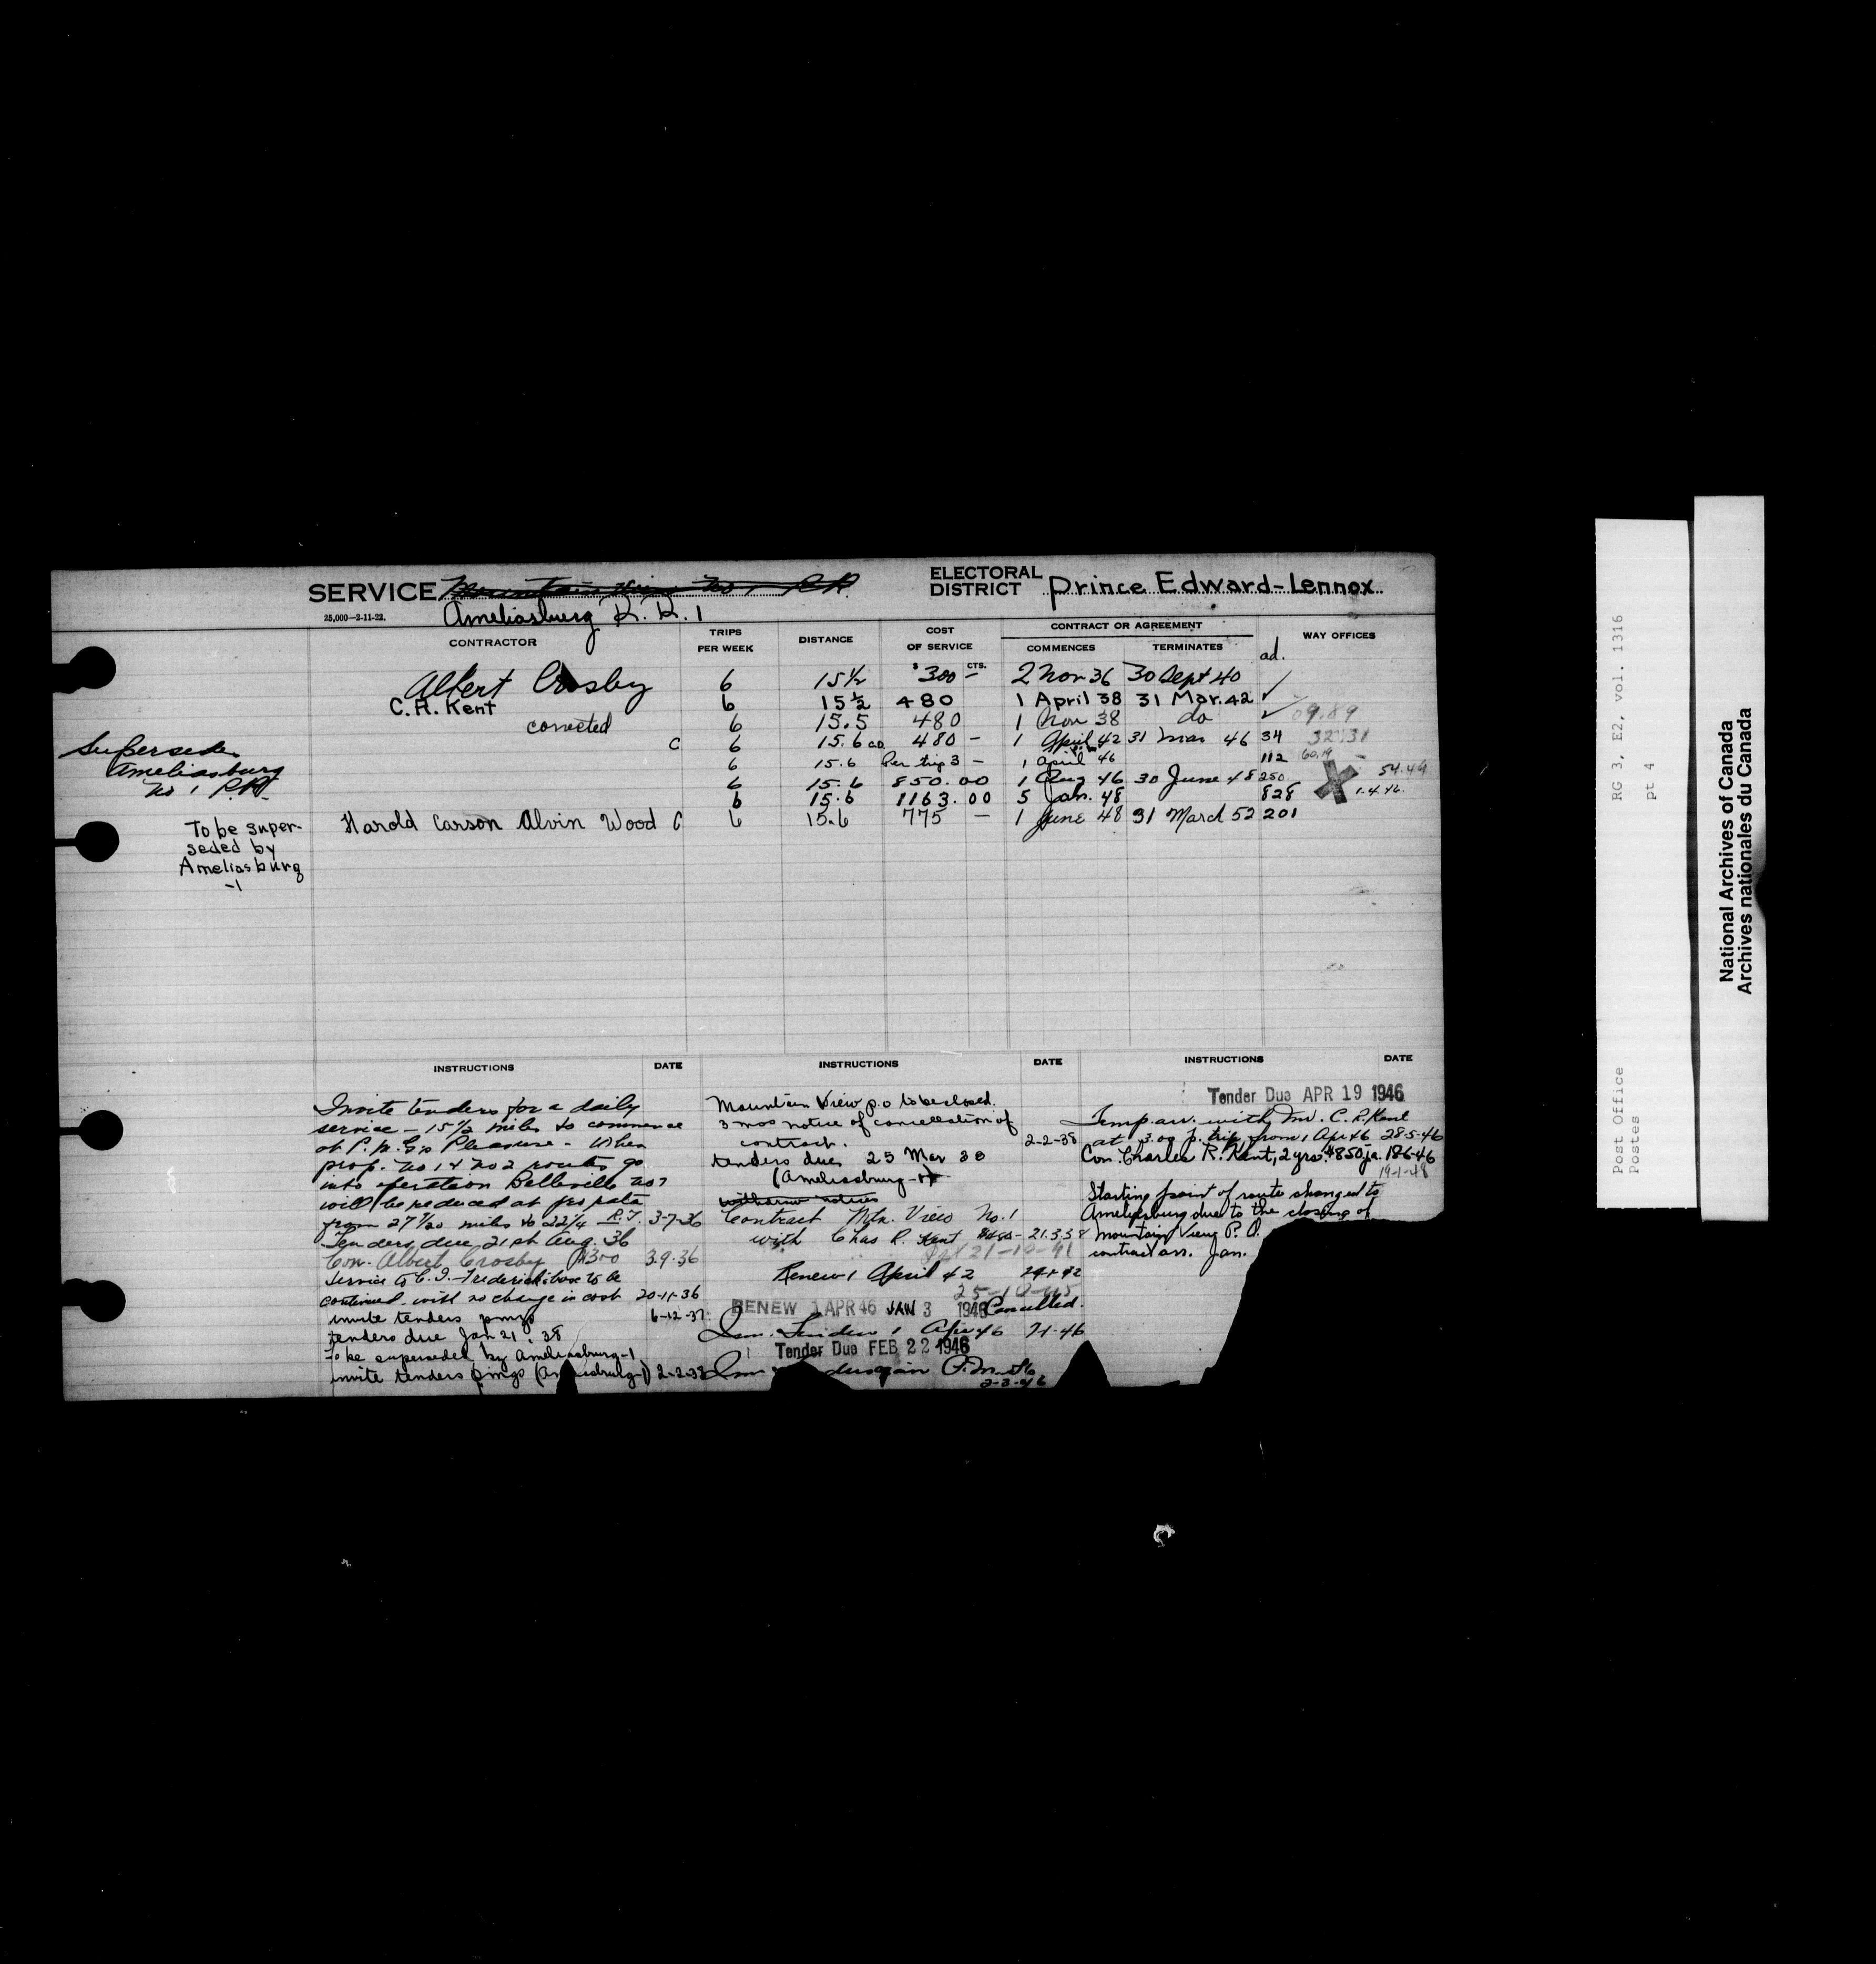 SERVICE Mountain View No 1 R.R.
ELECTORAL DISTRICT Prince Edward-Lennox
25,000—2-11-22.
Ameliasburg R.R. 1
CONTRACTOR TRIPS PER WEEK DISTANCE COST OF SERVICE CONTRACT OR AGREEMENT COMMENCES TERMINATES ad. WAY OFFICES
$ CTS.
Albert Crosby 6 15½ 300 — 2 Nov 36 30 Sept 40 ✓
C.R. Kent 6 15½ 480 1 April 38 31 Mar. 42 ✓
corrected 6 15.5 480 1 Nov 38 do ✓ 09.89
C 6 15.6 480 — 1 April 42 31 Mar 46 34 32.31
6 15.6 Per trip 3 — 1 April 46 112 60.19
6 15.6 850.00 1 Aug 46 30 June 48 250 54.49
6 15.6 1163.00 5 Jan. 48 828 1.4.46.
Harold Carson Alvin Wood C 6 15.6 775 — 1 June 48 31 March 52 201
Supersedes
Ameliasburg
No 1 R.R.
To be super-
seded by
Ameliasburg
-1
INSTRUCTIONS DATE
Invite tenders for a daily
service — 15½ miles to commence
at P.M.G's Pleasure - When
prop. No 1 & No 2 routes go
into operation Belleville No 7
will be reduced at pro rata
from 27 1/20 miles to 22 1/4 R.T. 3-7-36
Tenders due 21st Aug. 36
Con. Albert Crosby $300 3.9.36
Service to C. J. Frederick box to be
continued with no change in cost 20-11-36
invite tenders pmgs 6-12-37
tenders due Jan 21. 38
To be superseded by Ameliasburg-1
invite tenders pmgs (Ameliasburg-1) 2-2-38
INSTRUCTIONS DATE
Mountain View p.o to be closed.
3 mos notice of cancellation of
contract. 2-2-38
tenders due 25 Mar 38
(Ameliasburg-1)
Contract Mtn. View No. 1
with Chas R. Kent $480- 21.3.38
21-10-41
Renew 1 April 42
RENEW 1 APR 46 JAN 3 1946 Cancelled.
Tender Due FEB 22 1946
2-3-46
INSTRUCTIONS DATE
Tender Due APR 19 1946
Temp. arr. with Mr. C. R. Kent
at 3.00 p. trip, from 1 Apr 46 28-5-46
Con. Charles R. Kent, 2 yrs. $850 pa. 18-6-46
19-1-48
Starting point of route changed to
Ameliasburg due to the closing of
Mountain View P.O.
contract arr. Jan.
Post Office RG 3, E2, vol. 1316
Postes pt 4
National Archives of Canada
Archives nationales du Canada